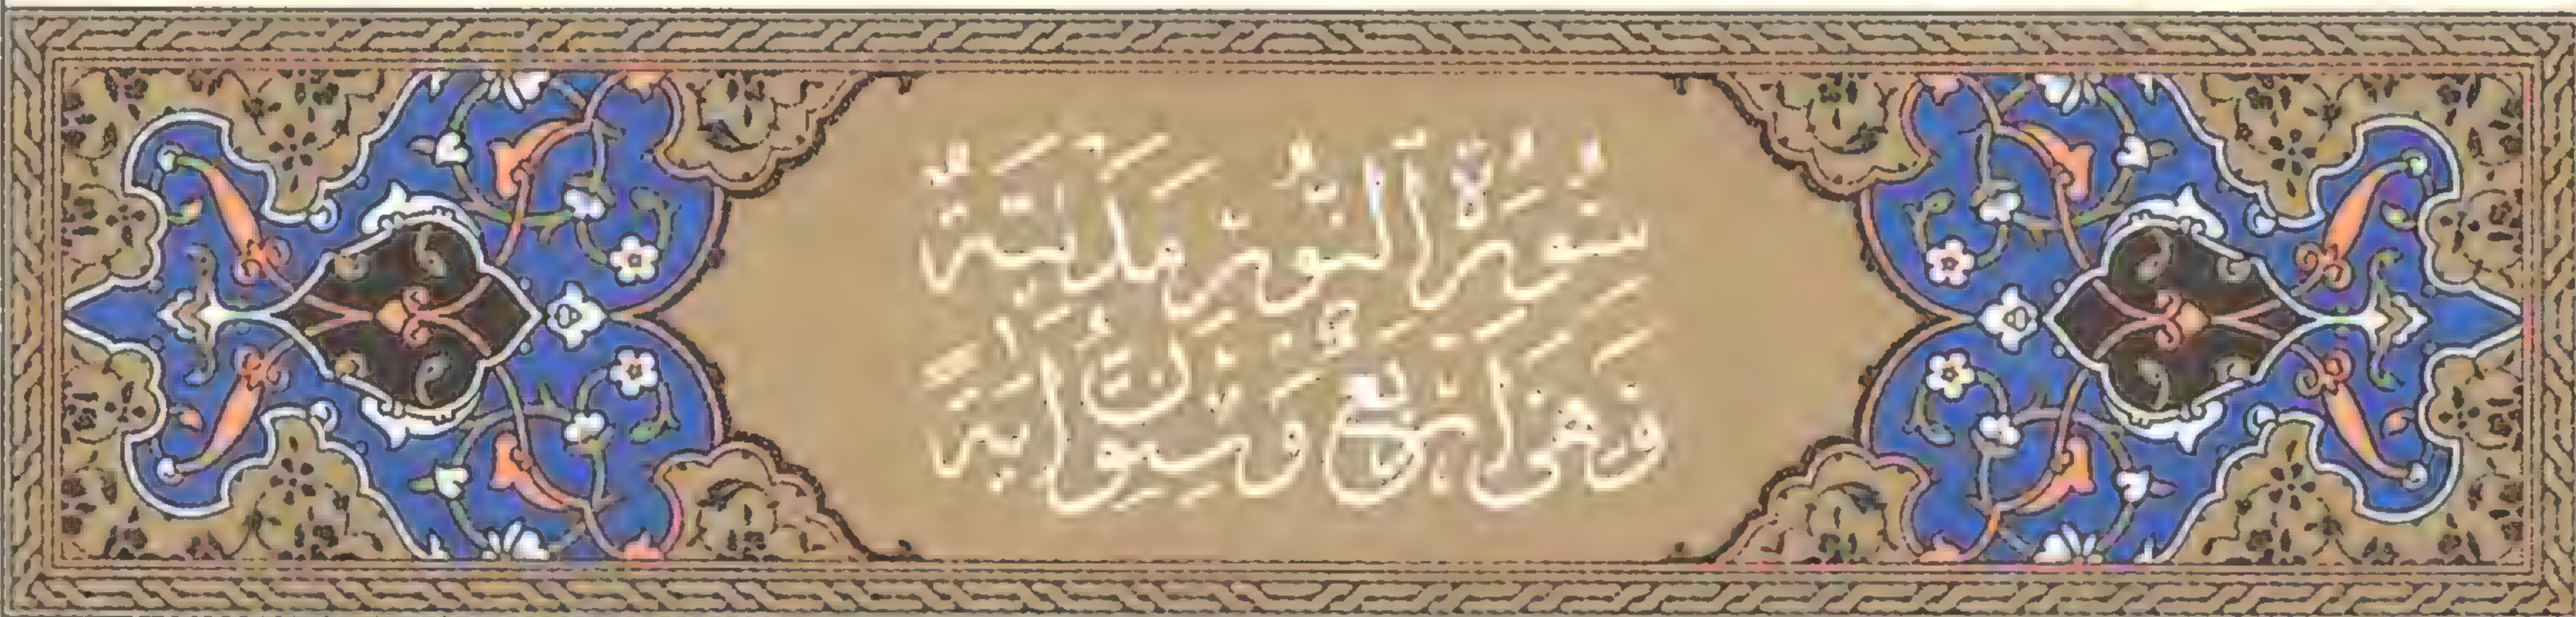 سُورَةُ ٱلنُّورِ مَدَنِيَّةٌ
وَهِيَ أَرْبَعٌ وَسِتُّونَ آيَةً